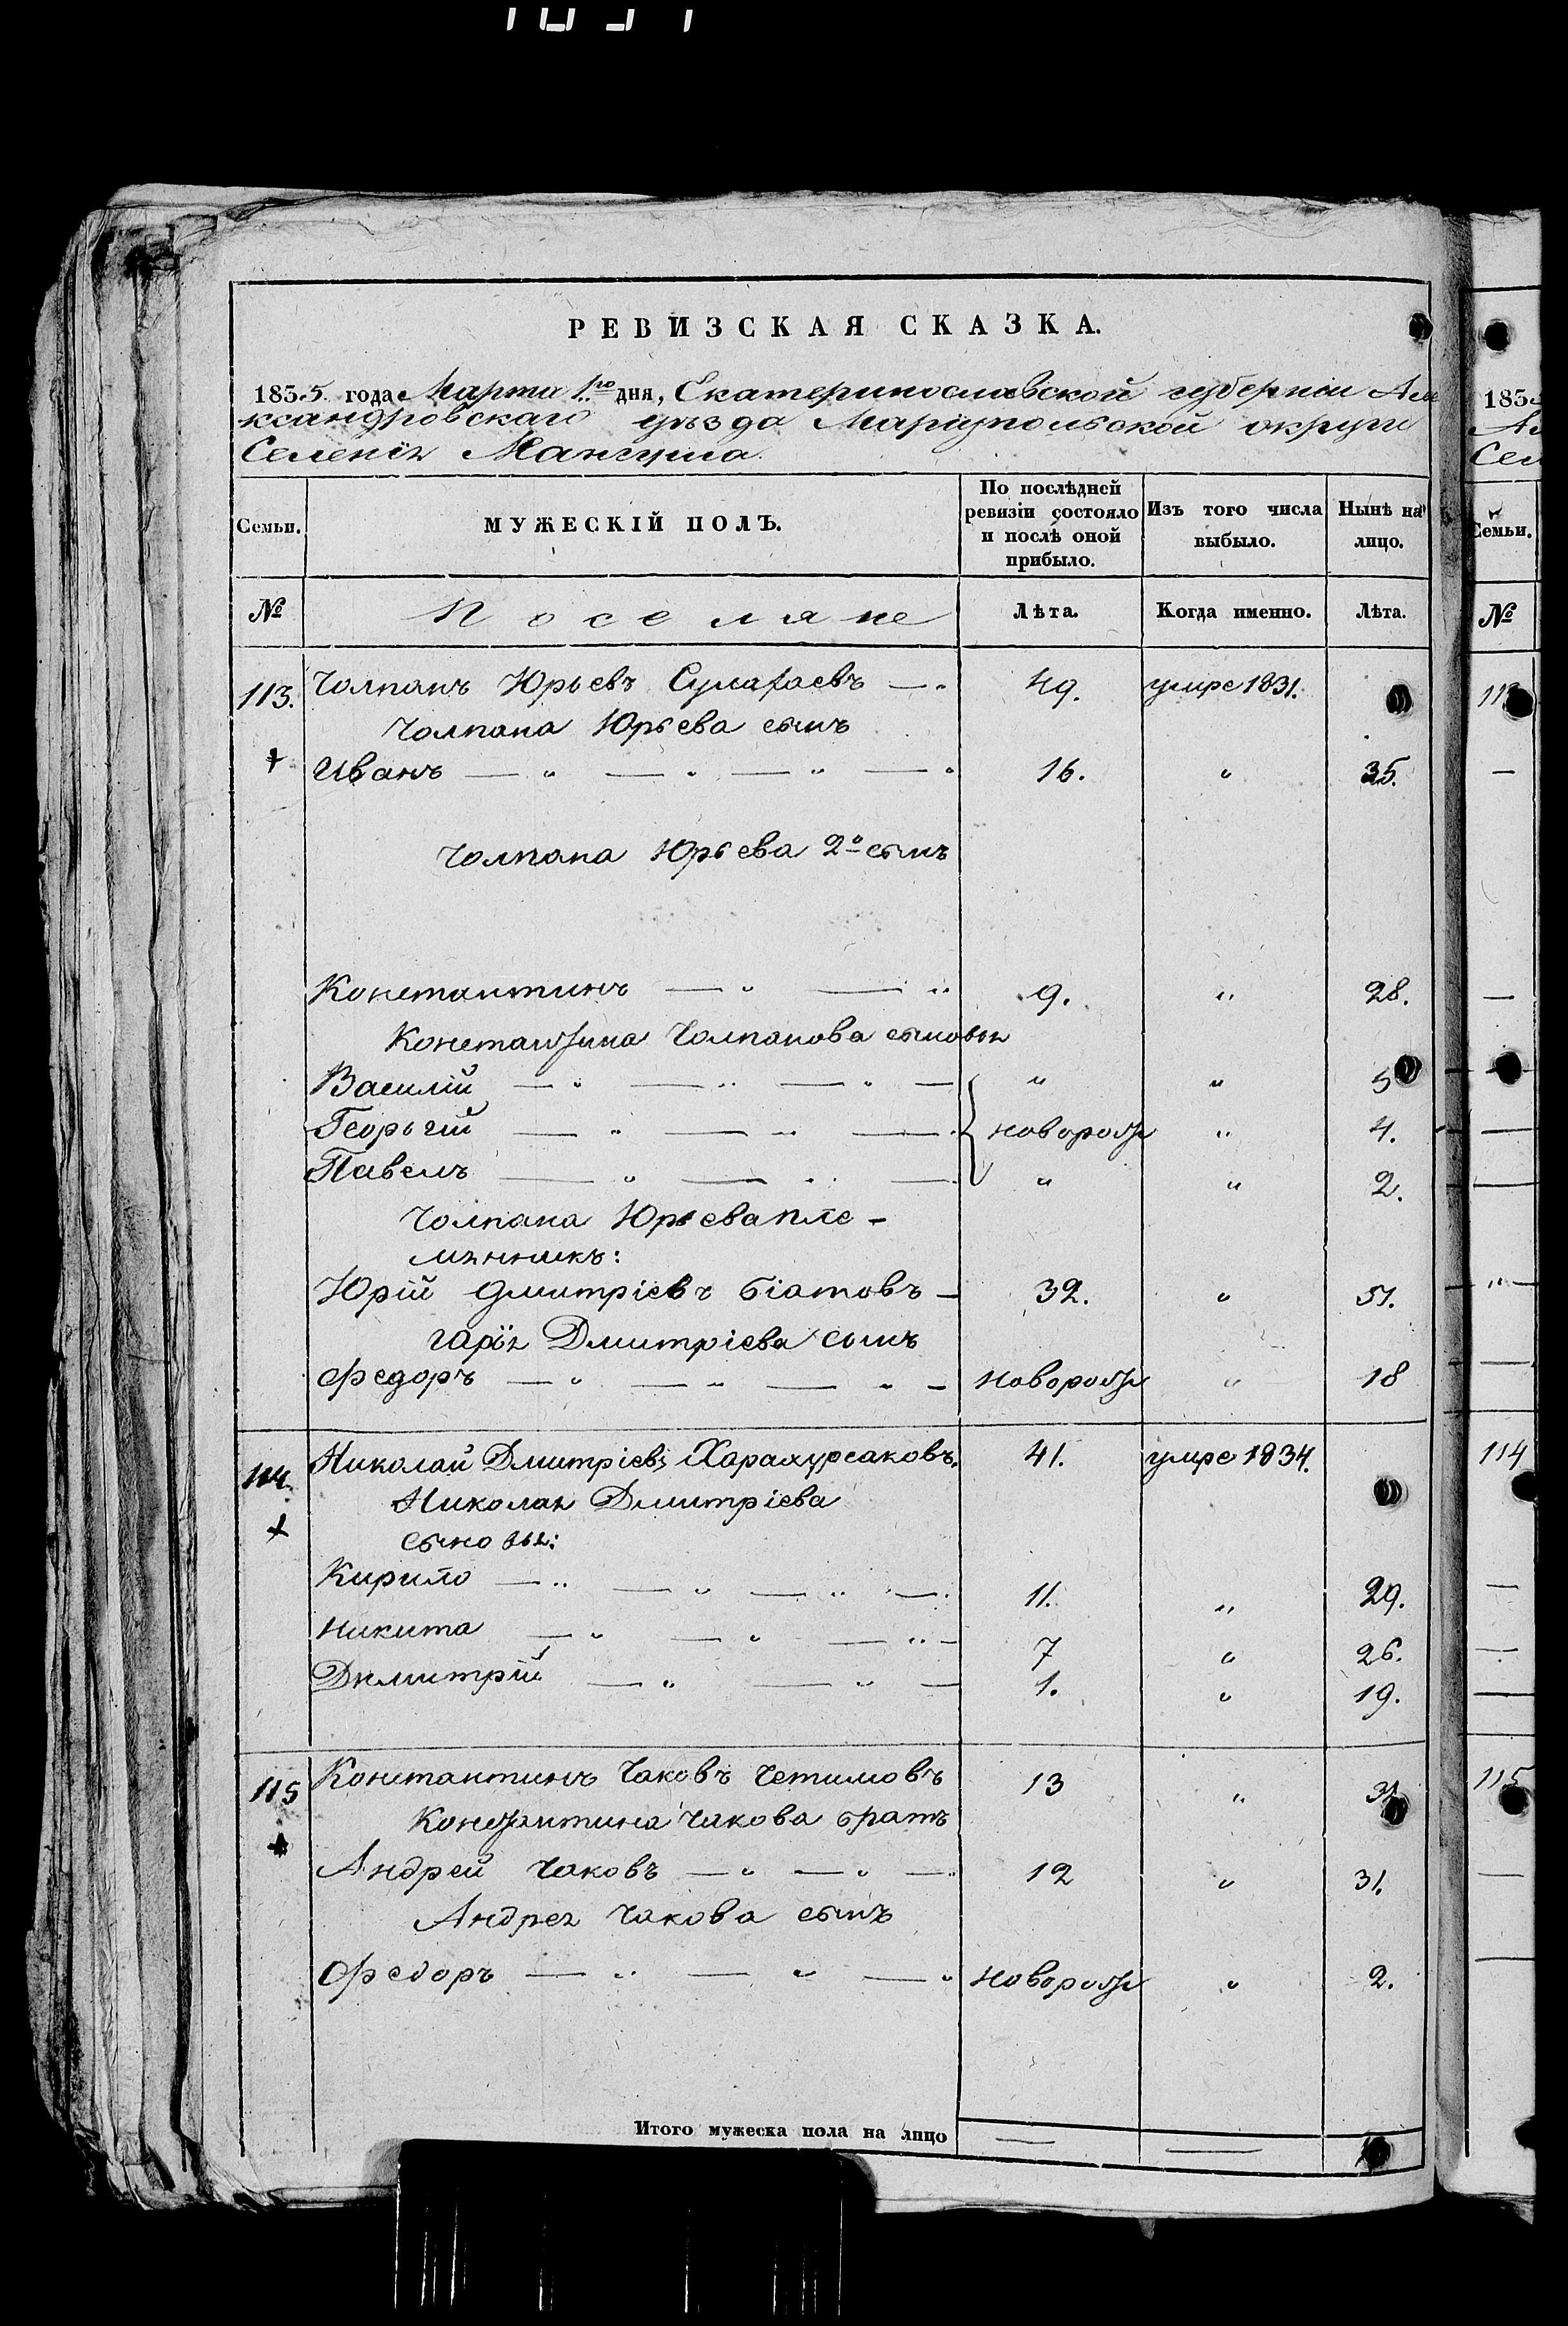 РЕВИЗСКАЯ СКАЗКА.
1835 года Марта 1го дня, Екатеринославской губернiи Але
ксандровскаго уѣзда Марiупольской округи
Селенiя Мангуша
Семьи. МУЖЕСКІЙ ПОЛЪ. По послѣдней ревизіи состояло и послѣ оной прибыло. Изъ того числа выбыло. Нынѣ на лицо.
№ Поселяне Лѣта. Когда именно. Лѣта.
113. Чолпанъ Юрьевъ 49. умре 1831.
Чолпана Юрьева сынъ
Иванъ — " — " — " — " 16. " 35.
Чолпана Юрьева 2й сынъ
Константинъ — " — " 9. " 28.
Константина Чолпанова сыновья
Василій — " — " — " — " " 5
Георьгій — " — " — новорож " 4.
Павелъ — " — " — " " 2.
Чолпана Юрьева пле-
мянникъ:
Юрій Дмитріевъ Біатовъ — 32. " 51.
Дмитріева сынъ
Федоръ — " — " — " — новорож " 18
114. Николай Дмитріевъ Харахурсаковъ. 41. умре 1834.
Николая Дмитріева
сыновья:
Кирило — " — " — " — 11. " 29.
Никита — " — " — " — 7 " 26.
Димитрій — " — " — 1. " 19.
115 Константинъ Чаковъ Четимовъ 13 "
Константина Чакова братъ
Андрей Чаковъ — " — " — " 12 " 31.
Андрея Чакова сынъ
Федоръ — " — " — " новорож " 2.
Итого мужеска пола на лицо — —
183
Семьи.
№
114
115